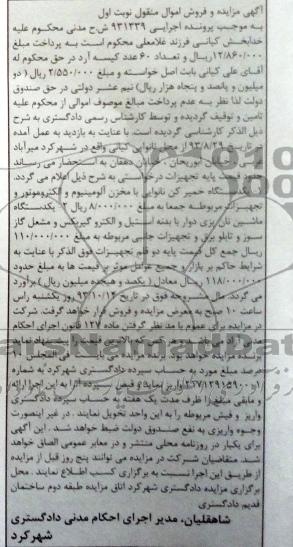 آگهی مزایده و فروش اموال منقول نوبت اول
به موجب پرونده اجرایی ۹۳۱۳۳۹ ش.ح مدنی محکوم علیه
خدابخش کیانی فرزند غلامعلی محکوم است به پرداخت مبلغ
۱۲/۸۶۰/۰۰۰ ریال و تعداد ۶۰ عدد کیسه آرد در حق محکوم له
آقای علی کیانی بابت اصل خواسته و مبلغ ۲/۵۵۰/۰۰۰ ریال ( دو
میلیون و پانصد و پنجاه هزار ریال) نیم عشر دولتی در حق صندوق
دولت لذا نظر به عدم پرداخت مبالغ موصوف اموالی از محکوم علیه
تامین و توقیف گردیده و توسط کارشناس رسمی دادگستری به شرح
ذیل الذکر کارشناسی گردیده است. با عنایت به بازدید به عمل آمده
در تاریخ ۹۳/۸/۲۹ از محل نانوایی کیانی واقع در شهرکرد میرآباد
خیابان دهقان به استحضار می رساند
قیمت پایه تجهیزات درخواستی به شرح ذیل اعلام می گردد.
یکدستگاه خمیر کن نانوایی با مخزن آلومینیوم و الکتروموتور و
تجهیزات مربوطه جمعا به مبلغ ۸/۰۰۰/۰۰۰ ریال ۲- یکدستگاه
ماشین نان پزی دوار با بدنه استیل و الکترو گیربکس و مشعل گاز
سوز و تابلو برق و تجهیزات جانبی مربوطه به مبلغ ۱۱۰/۰۰۰/۰۰۰
ریال جمع کل قیمت پایه دو قلم تجهیزات فوق الذکر با عنایت به
شرایط حاکم بر بازار و جمیع عوامل موثر بر قیمت ها به مبلغ حدود
۱۱۸/۰۰۰/۰۰۰ ریال معادل ( یکصد و هیجده میلیون ریال ) برآورد
می گردد. مال مشروحه فوق در تاریخ ۹۳/۱۰/۱۴ روز یکشنبه راس
ساعت ۱۰ صبح به معرض مزایده و فروش قرار خواهد گرفت. شرکت
در مزایده برای عموم با مد نظر گرفتن ماده ۱۲۷ قانون اجرای احکام
نماید
برنده مزایده خواهد بود. برنده مزایده
درصد مبلغ مورد به حساب سپرده دادگستری شهرکرد به شماره
واریز نماید و فیش سپرده آنرا به این اجرا ارائه
و مابقی مبلغ را ظرف مدت یک هفته به حساب سپرده دادگستری
واریز و فیش مربوطه را به این واحد تحویل نمایند . در غیر اینصورت
وجوه واریزی به نفع صندوق دولت ضبط خواهد شد. این آگهی
برای یکبار در روزنامه محلی منتشر و در معابر عمومی الصاق خواهد
شد متقاضیان شرکت در مزایده می توانند پنج روز قبل از مزایده
از طریق این اجرا نسبت به برگزاری کسب اطلاع نمایند . محل
برگزاری مزایده دادگستری شهرکرد اتاق مزایده طبقه دوم ساختمان
قدیم دادگستری
شاهقلیان، مدیر اجرای احکام مدنی دادگستری
شهرکرد